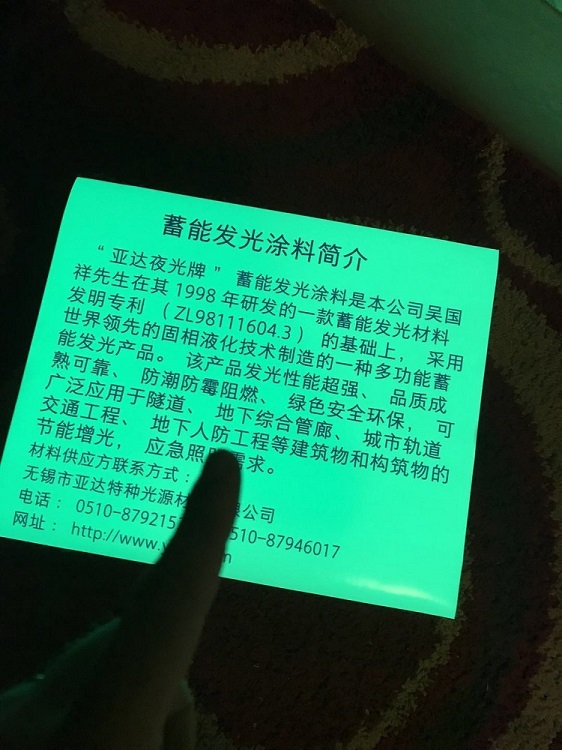 蓄能发光涂料简介
“亚达夜光牌”蓄能发光涂料是本公司吴国
祥先生在其1998年研发的一款蓄能发光材料
发明专利（ZL98111604.3）的基础上，采用
世界领先的固相液化技术制造的一种多功能蓄
能发光产品。该产品发光性能超强、品质成
熟可靠、防潮防霉阻燃、绿色安全环保，可
广泛应用于隧道、地下综合管廊、城市轨道
交通工程、地下人防工程等建筑物和构筑物的
节能增光，应急照明需求。
材料供应方联系方式：
无锡市亚达特种光源材 限公司
电话：0510-879215 510-87946017
网址：http://www.y n